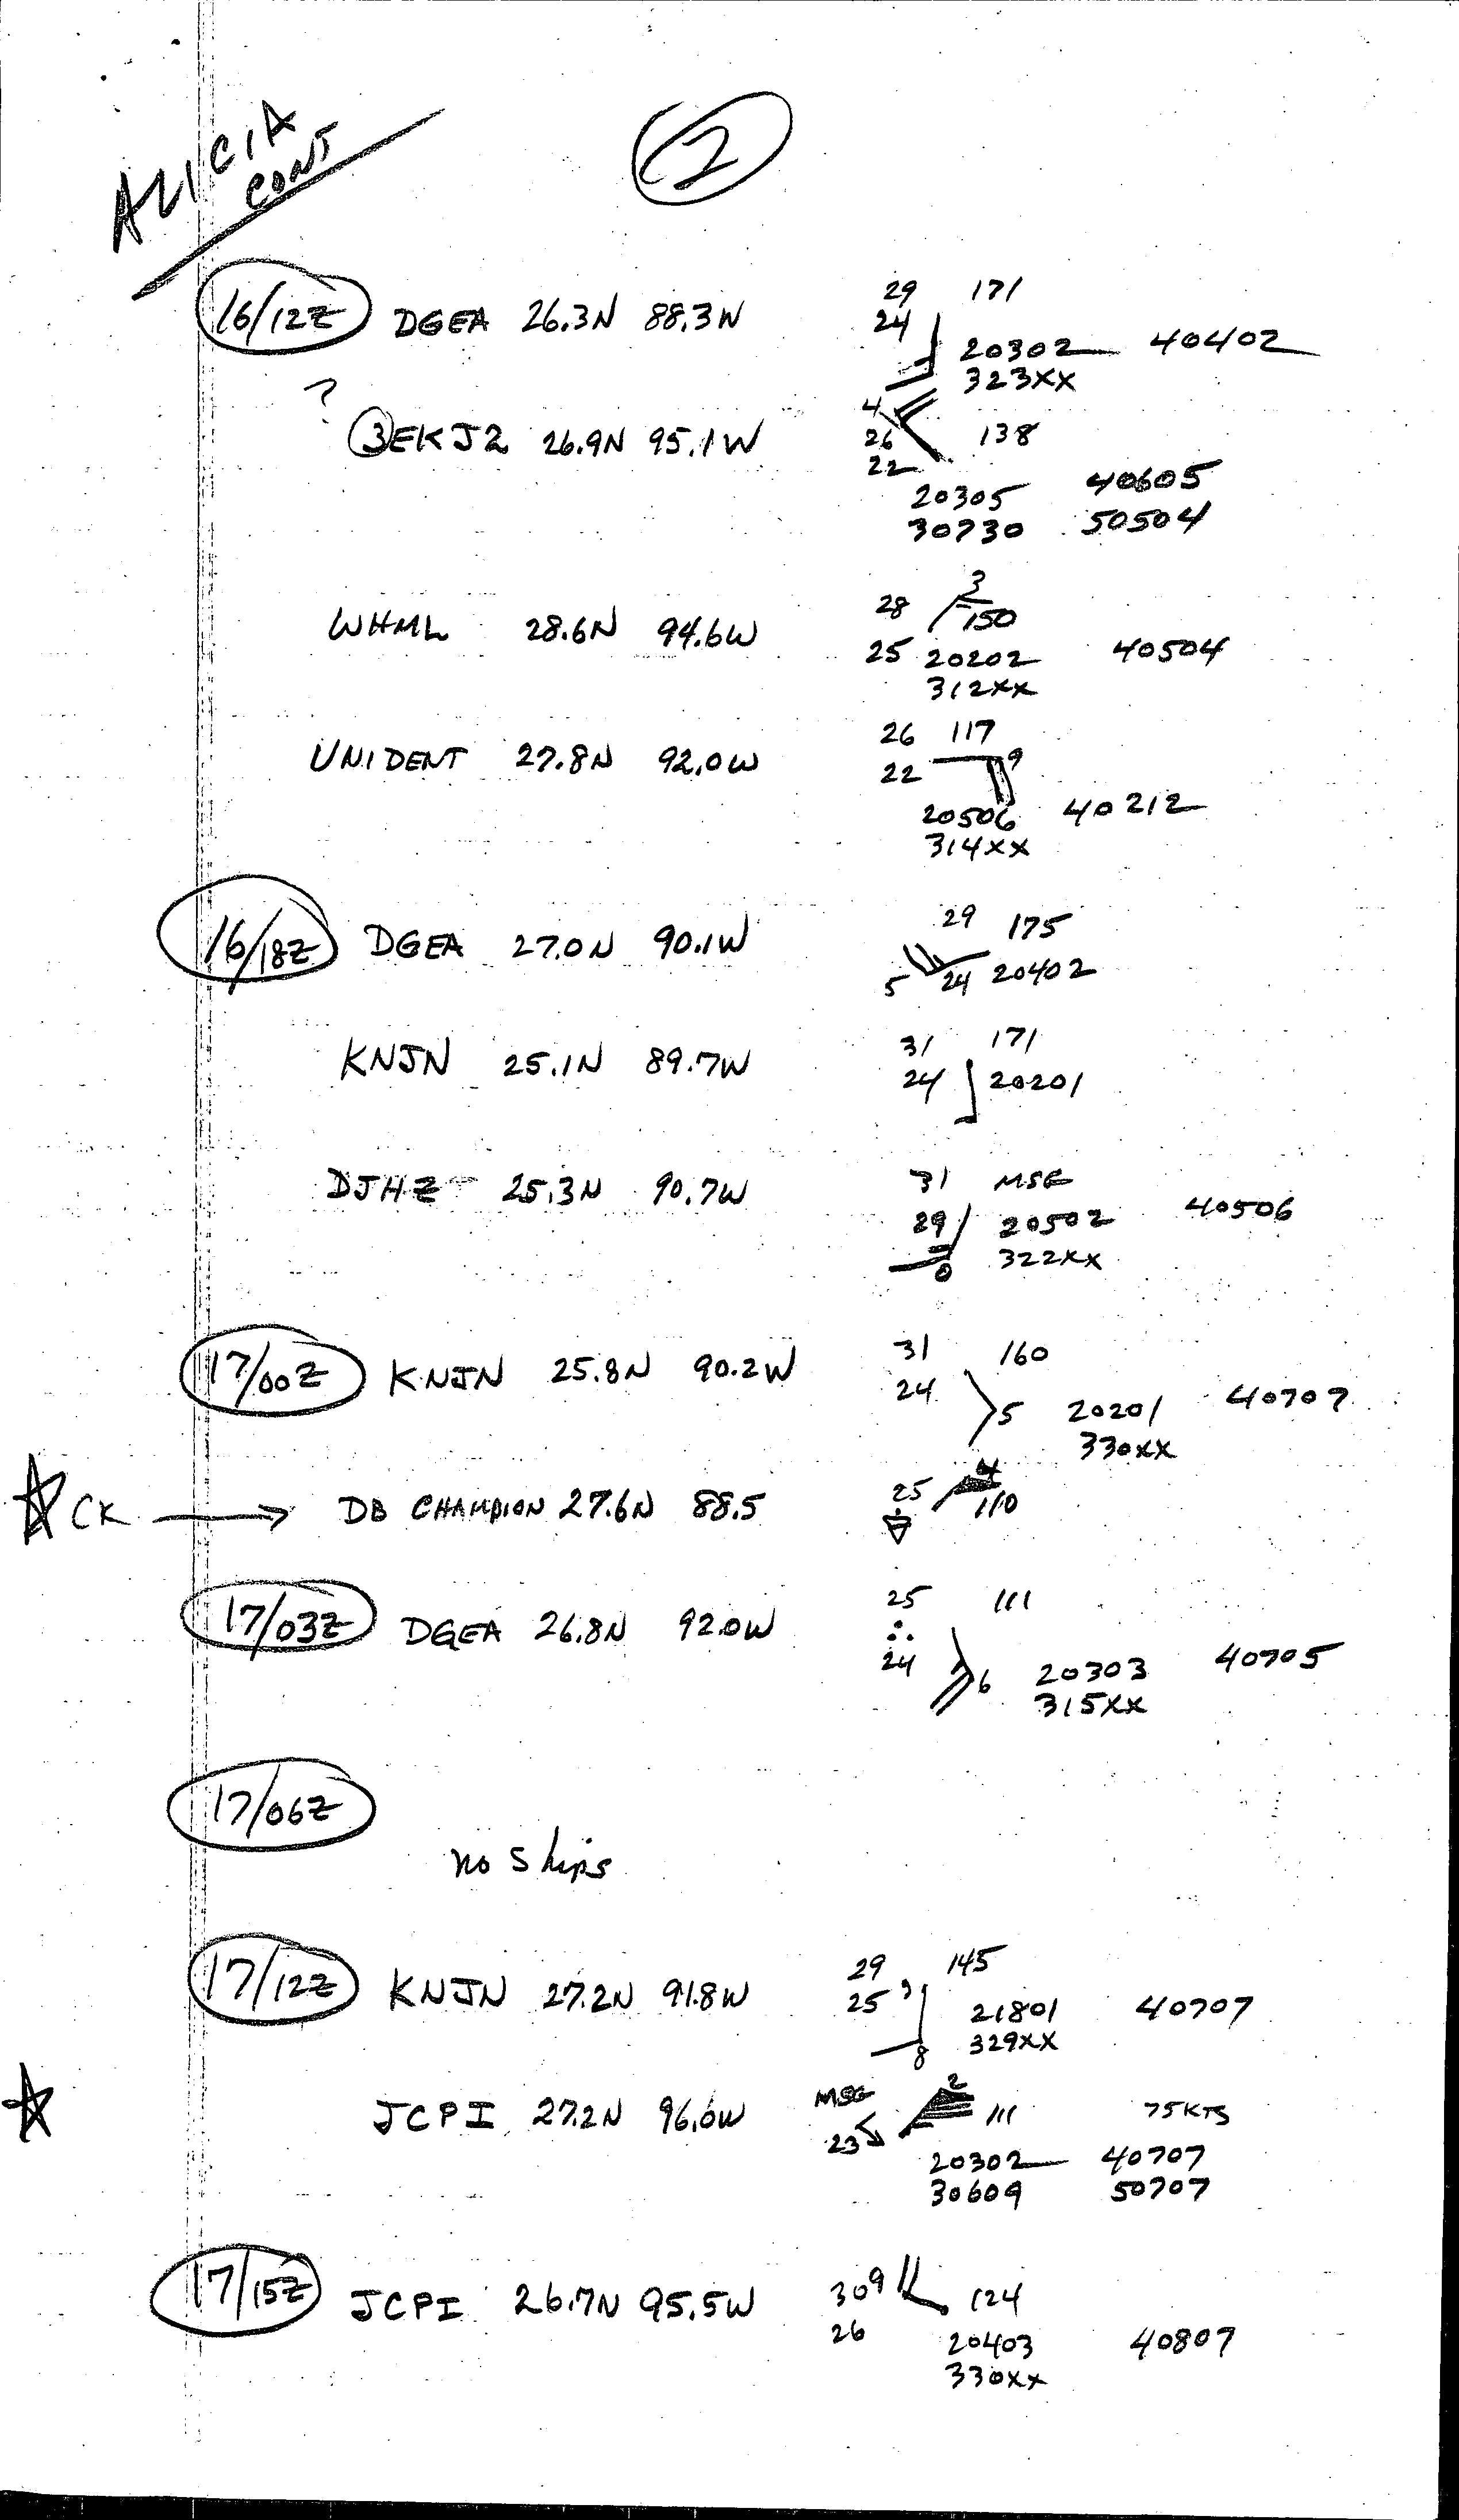 ALICIA
CONT
2
16/12Z DGEA 26.3N 88.3W 29 171
24
20302 40402
323XX
?
3EKJ2 26.9N 95.1W 4
26 138
22
20305 40605
30730 50504
WHML 28.6N 94.6W 28 3
150
25 20202 40504
312XX
UNIDENT 27.8N 92.0W 26 117
22 9
20506 40212
314XX
16/18Z DGEA 27.0N 90.1W 29 175
5 24 20402
KNJN 25.1N 89.7W 31 171
24 20201
DJHZ 25.3N 90.7W 31 MSG
29 20502 40506
0 322XX
17/00Z KNJN 25.8N 90.2W 31 160
24 5 20201 40707
330XX
CK → DB CHAMPION 27.6N 88.5 25 110
17/03Z DGEA 26.8N 92.0W 25 111
24 6 20303 40705
315XX
17/06Z
no ships
17/12Z KNJN 27.2N 91.8W 29 145
25 9 21801 40707
8 329XX
JCPI 27.2N 96.0W MSG 2 111 75KTS
23
20302 40707
30609 50707
17/15Z JCPI 26.7N 95.5W 30 9 124
26 20403 40807
330XX